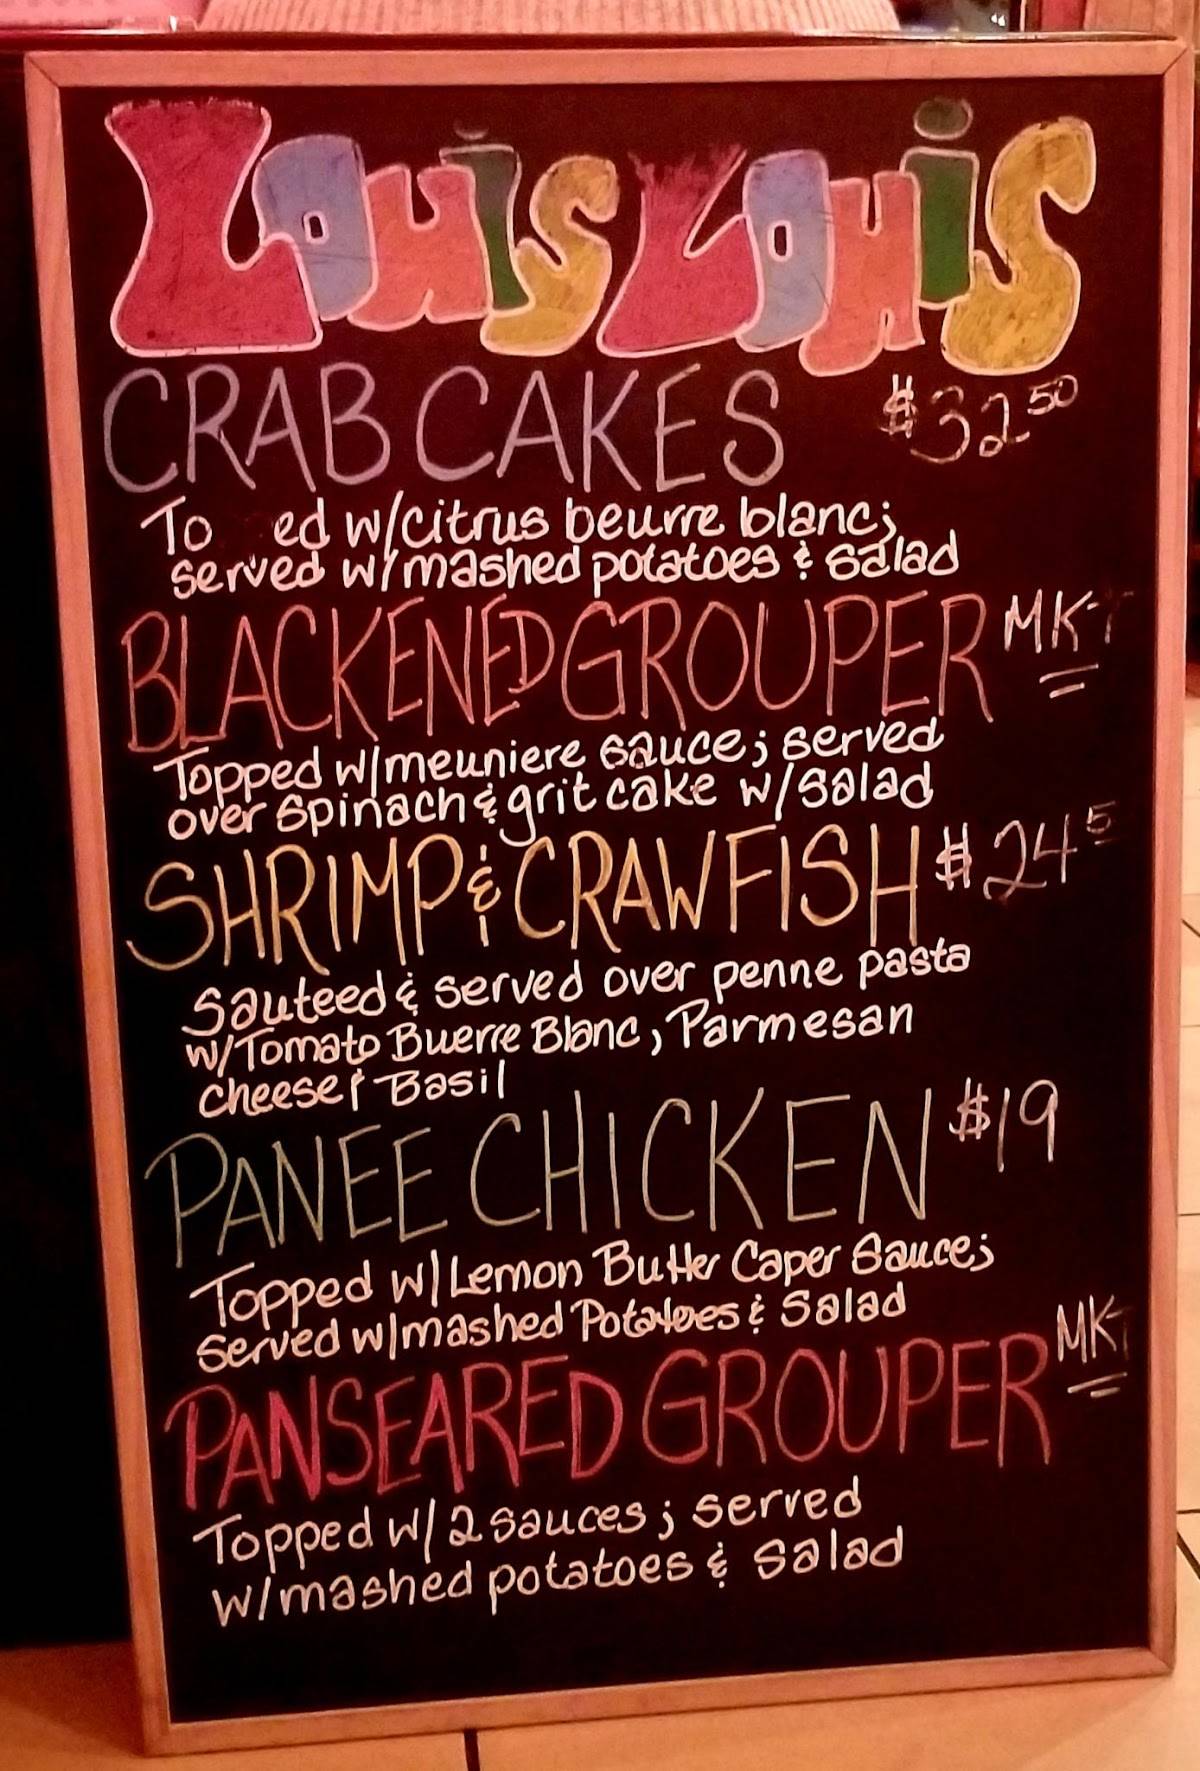 Louis Louis
CRAB CAKES $32 50
To ed w/citrus beurre blanc;
served w/mashed potatoes & salad
BLACKENED GROUPER MKT
Topped w/meuniere sauce; served
over spinach & grit cake w/salad
SHRIMP & CRAWFISH $24 5
Sauteed & served over penne pasta
w/Tomato Buerre Blanc, Parmesan
cheese & Basil
PANEE CHICKEN $19
Topped w/Lemon Butter Caper Sauce;
Served w/mashed Potatoes & Salad
PANSEARED GROUPER MKT
Topped w/2 sauces; served
w/mashed potatoes & salad